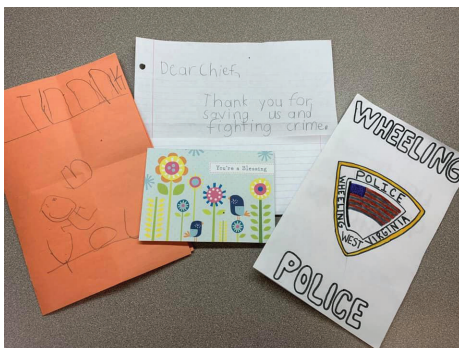 THANK
YOU
Dear Chief,
Thank you for
saving us and
fighting crime.
You're a Blessing
WHEELING
POLICE
WHEELING
WEST VIRGINIA
POLICE